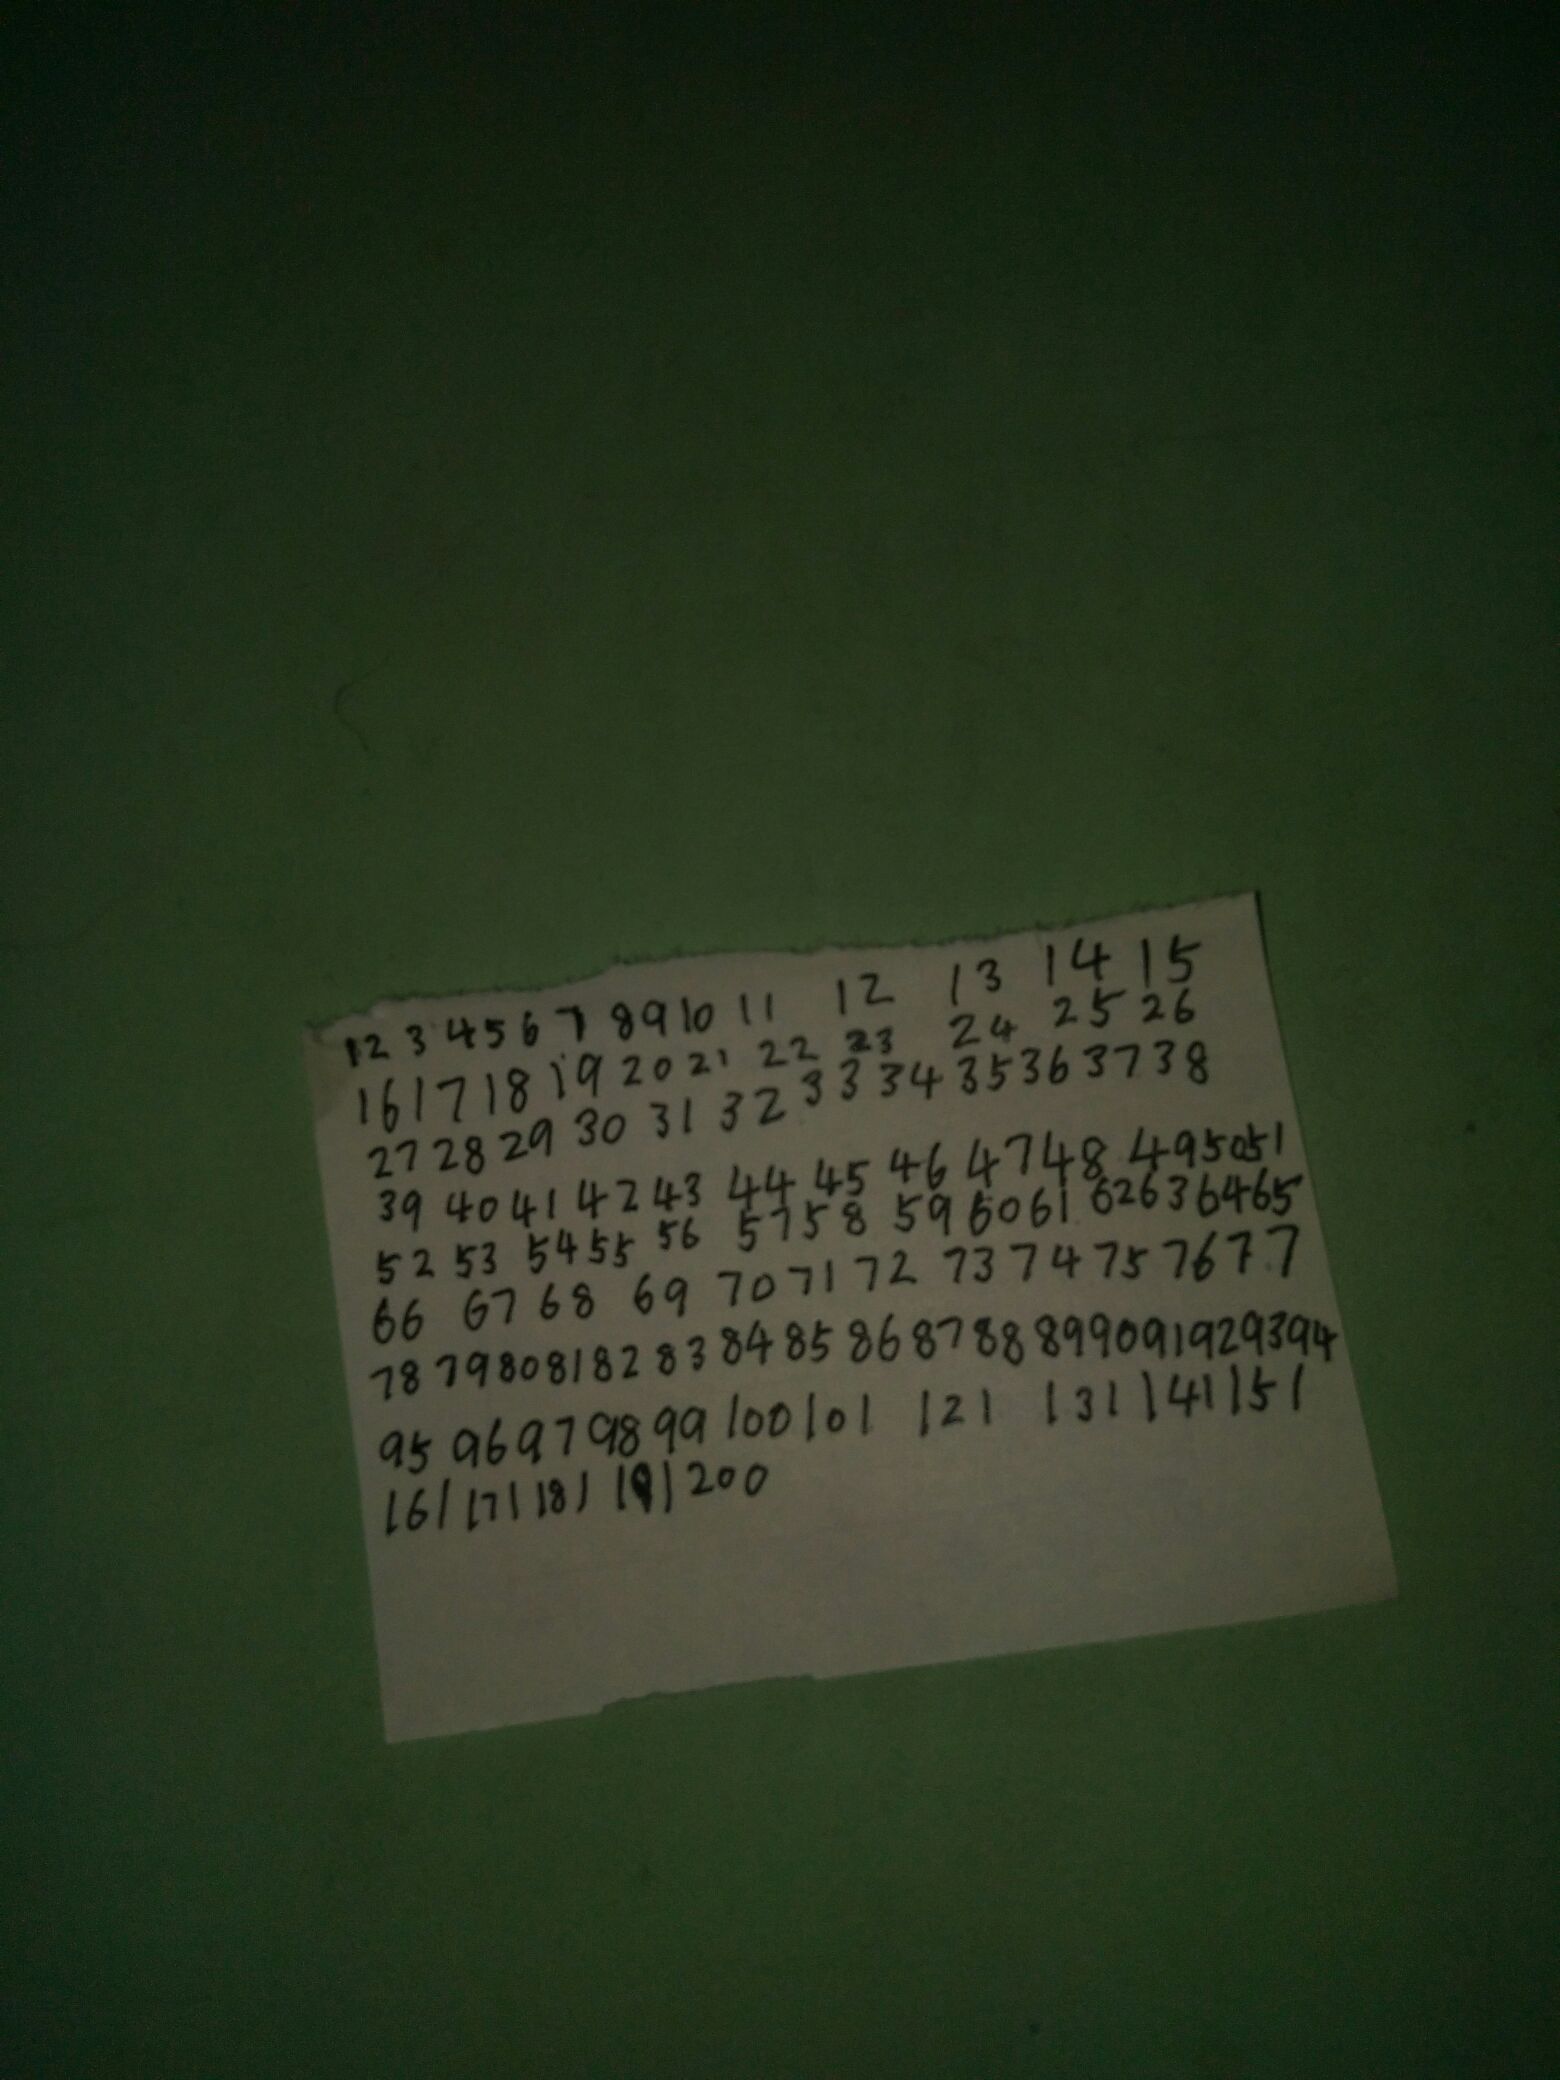 1 2 3 4 5 6 7 8 9 10 11 12 13 14 15
16 17 18 19 20 21 22 23 24 25 26
27 28 29 30 31 32 33 34 35 36 37 38
39 40 41 42 43 44 45 46 47 48 49 50 51
52 53 54 55 56 57 58 59 60 61 62 63 64 65
66 67 68 69 70 71 72 73 74 75 76 77
78 79 80 81 82 83 84 85 86 87 88 89 90 91 92 93 94
95 96 97 98 99 100 101 121 131 141 151
161 171 181 191 200